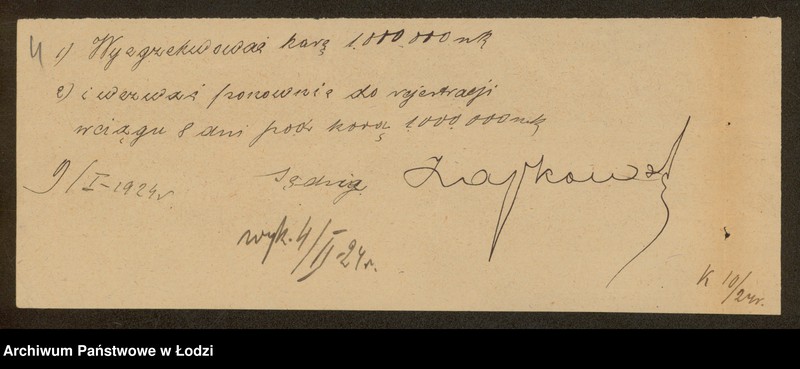 4
1) Wyegzekwować karę 1.000.000 mk
2) i wezwać ponownie do rejestracji
w ciągu 8 dni pod karą 1.000.000 mk
9/I-1924 r
Sędzia
wyk. 4/II-24 r.
K 10/24 r.
Archiwum Państwowe w Łodzi